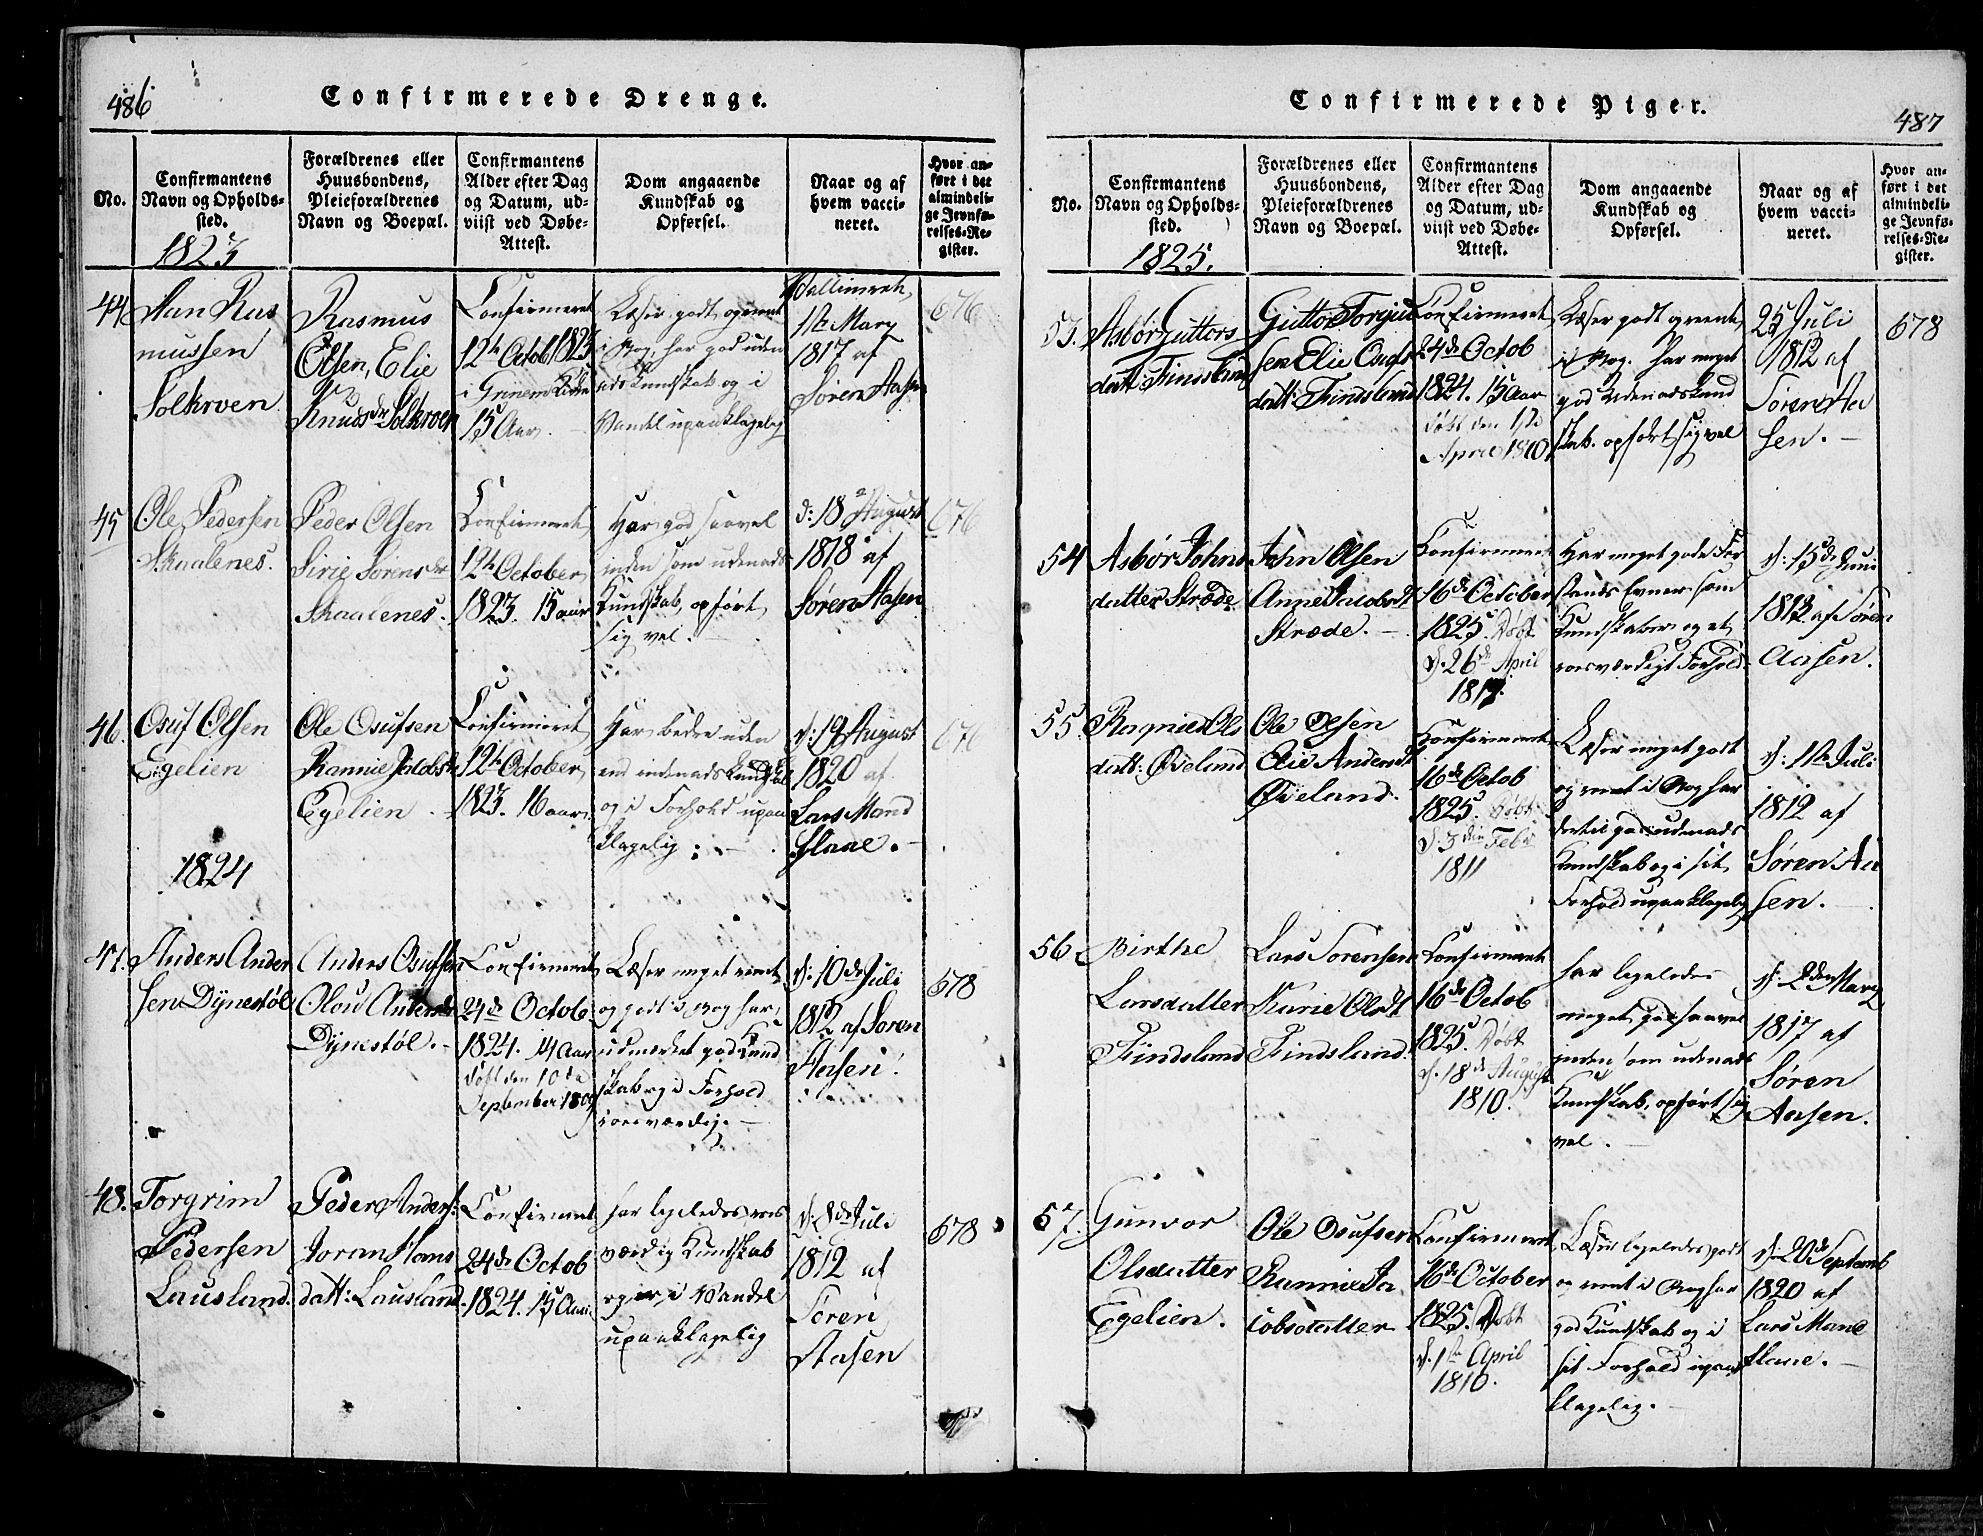 486
Confirmerede Drenge.
No.
Confirmantens
Navn og Opholds-
sted.
1823
Forældrenes eller
Huusbondens,
Pleieforældrenes
Navn og Boepæl.
Confirmantens
Alder efter Dag
og Datum, ud-
viist ved Døbe-
Attest.
Dom angaaende
Kundskab og
Opførsel.
Naar og af
hvem vacci-
neret.
Hvor an-
ført i det
almindeli-
ge Jevnfø-
relses-Re-
gister.
44
Rasmus
Olsen, Elie
Confirmeret
12te Octob 1823
15 Aar.
Læser godt og
i Bog, har god uden
ads Kundskab og i
Vandel upaaklagelig
1817 af
Søren Aasen
676
45
Ole Pedersen
Skaalenes.
Peder Olsen
Sirie Sørensdr
Skaalenes.
Confirmeret
12te October
1823. 15 aar
Har god saavel
inden som udenads
Kundskab, opført
sig vel.
d: 18 August
1818 af
Søren Aasen
676
46.
Osuf Olsen
Egelien
Ole Osufsen
Egelien
Confirmeret
12te October
1823. 16 aar.
Har bedre uden
end indenads Kundskab
og i Forhold upaa
klagelig.
d: 19 August
1820 af
Lars Mand
flaae.
676
1824
47.
Anders Ander
sen Dÿnestøl
Anders Osufsen
Dÿnestøl.
Confirmeret
24de Octob
1824. 14 Aar
døbt den 10de
September 1809
Læser meget reent
og godt i Bog har
udmerket god Kund
skab og i Forhold
roesværdig.
d: 10de Juli
1812 af Søren
Aasen.
678
48.
Torgrim
Pedersen
Lausland.
Peder Anders:
Joran Hans
datt: Lausland
Confirmeret
24de Octob
1824. 15 Aar
har ligeledes roes
værdig Kundskab
og er i Vandel
upaaklagelig
d: 8de Juli
1812 af
Søren
Aasen
678
Confirmerede Piger.
487
No.
Confirmantens
Navn og Opholds-
sted.
1825.
Forældrenes eller
Huusbondens,
Pleieforældrenes
Navn og Boepæl.
Confirmantens
Alder efter Dag
og Datum, ud-
viist ved Døbe-
Attest.
Dom angaaende
Kundskab og
Opførsel.
Naar og af
hvem vacci-
neret.
Hvor an-
ført i det
almindeli-
ge Jevnfø-
relses-Re-
gister.
53.
Asbør Guttors
datt: Findsland
Guttor Torgius
sen Elie Osufs
datt: Findsland
Confirmeret
24de Octob
1824. 15 Aar
døbt den 1ste
April 1810
Læser godt og reent
i Bog. har meget
god Udenads Kund
skab. opført sig vel
25 Juli
1812 af
Søren Aa
sen.
678
54
Asbør Johns
datter Stræde
John Olsen
Anne Jacobsdt
Stræde.
Confirmeret
16de October
1825. Døbt
d. 26de April
Har meget gode For
stands Evner som
Kundskaber og et
roesværdigt Forhold.
d: 15de Juni
af Søren
Aasen.
55.
Ragnild Ols
datt: Øveland
Ole Olsen
Elie Andersdt
Øveland.
Confirmeret
16de Octob
1825. Døbt
d. 3die Febr
1811
Læser meget godt
og reent i Bog har
dertil god udenads
Kundskab og i sit
Forhold upaaklagelig
d: 11te Juli
1812 af
Søren Aa
sen.
56
Birthe
Larsdatter
Findsland
Lars Sørensen
Karie Olsdt
Findsland.
Confirmeret
16de Octob
1825. Døbt
d. 18de August
1810.
har ligeledes
meget god saavel
inden som udenads
Kundskab, opført sig
vel.
d: 2den Marz
1817 af
Søren
Aasen.
57.
Gunvor
Olsdatter
Egelien.
Ole Osufsen
Rannie Ja
cobsdatter
Confirmeret
16de October
1825. Døbt
d. 1ste April
1810.
Læser ligeledes godt
og reent i Bog har
god Kundskab og i
sit Forhold upaa
klagelig.
d: 20de Septemb
1820 af
Lars Mand
flaae.